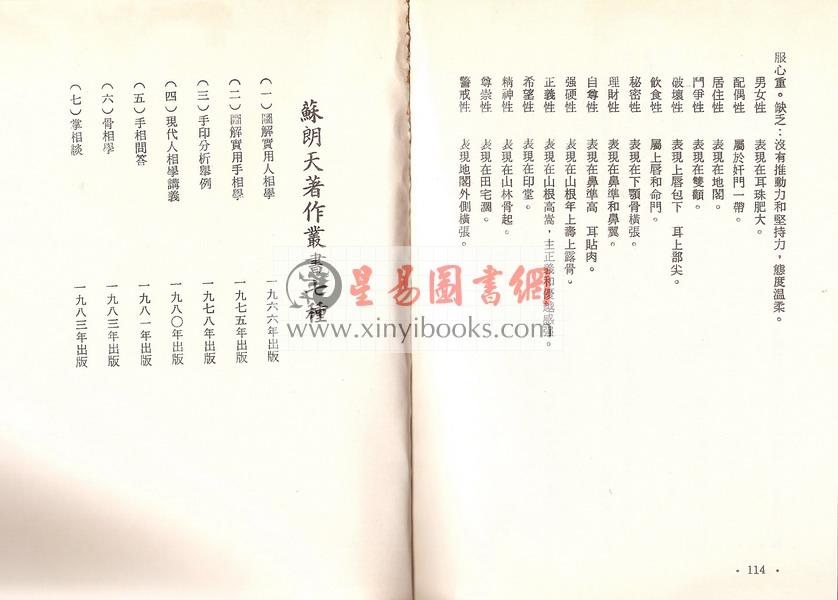 服心重。缺乏：沒有推動力和堅持力，態度溫柔。
男女性 表現在耳珠肥大。
配偶性 屬於奸門一帶。
居住性 表現在地閣。
鬥爭性 表現在雙顴。
破壞性 表現上唇包下 耳上部尖。
飲食性 屬上唇和命門。
秘密性 表現在下顎骨橫張。
理財性 表現在鼻準和鼻翼。
自尊性 表現在鼻準高 耳貼肉。
强硬性 表現在山根年上壽上露骨。
正義性 表現在山根高嵩，主正義和優越感。
希望性 表現在印堂。
精神性 表現在山林骨起。
尊崇性 表現在田宅濶。
警戒性 表現地閣外側橫張。
• 114 •
蘇朗天著作叢書七種
（一）圖解實用人相學 一九六六年出版
（二）圖解實用手相學 一九七五年出版
（三）手印分析舉例 一九七八年出版
（四）現代人相學講義 一九八〇年出版
（五）手相問答 一九八一年出版
（六）骨相學 一九八三年出版
（七）掌相談 一九八三年出版
星易圖書網
www.xinyibooks.com